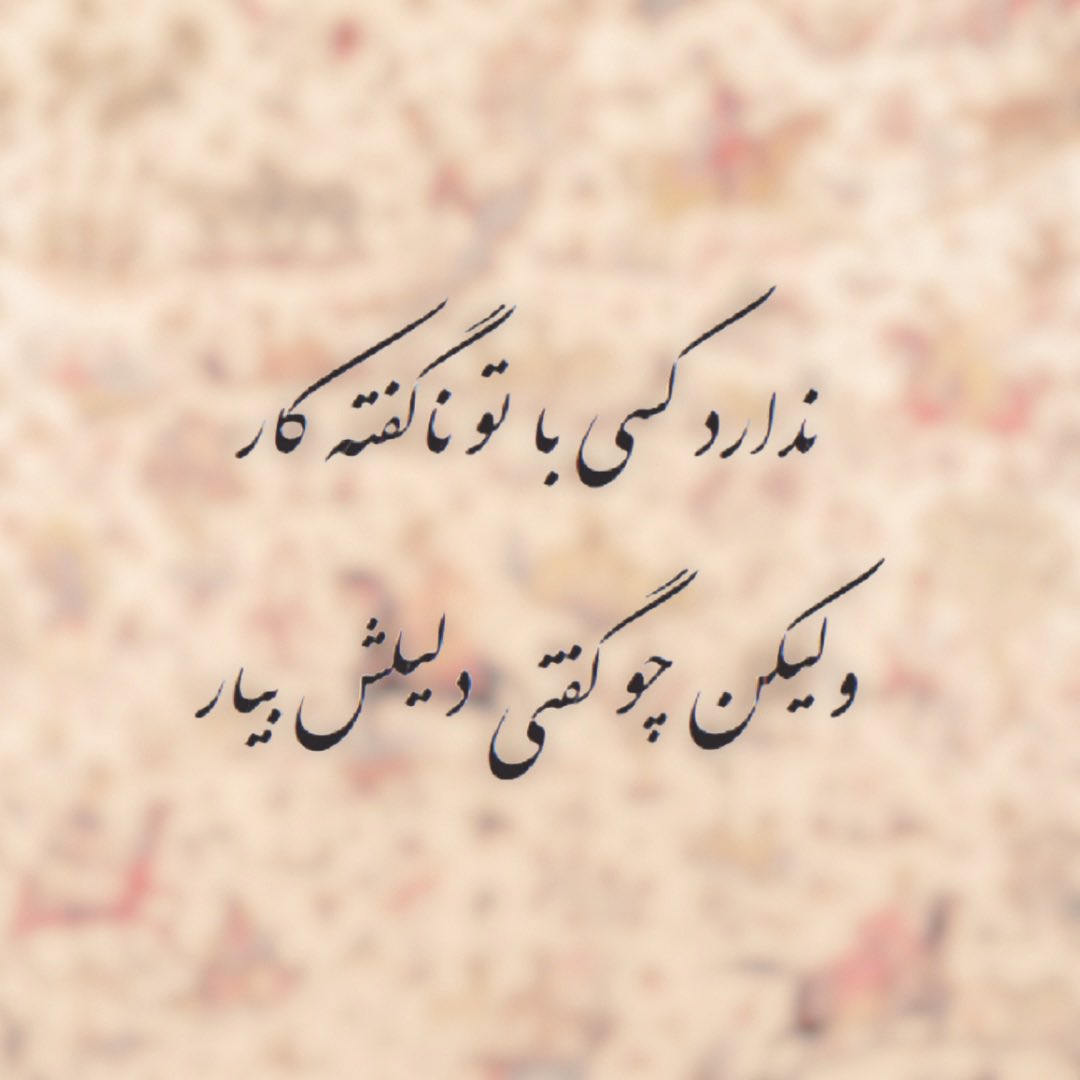 ندارد کسی با تو ناگفته کار
ولیکن چو گفتی دلیلش بیار